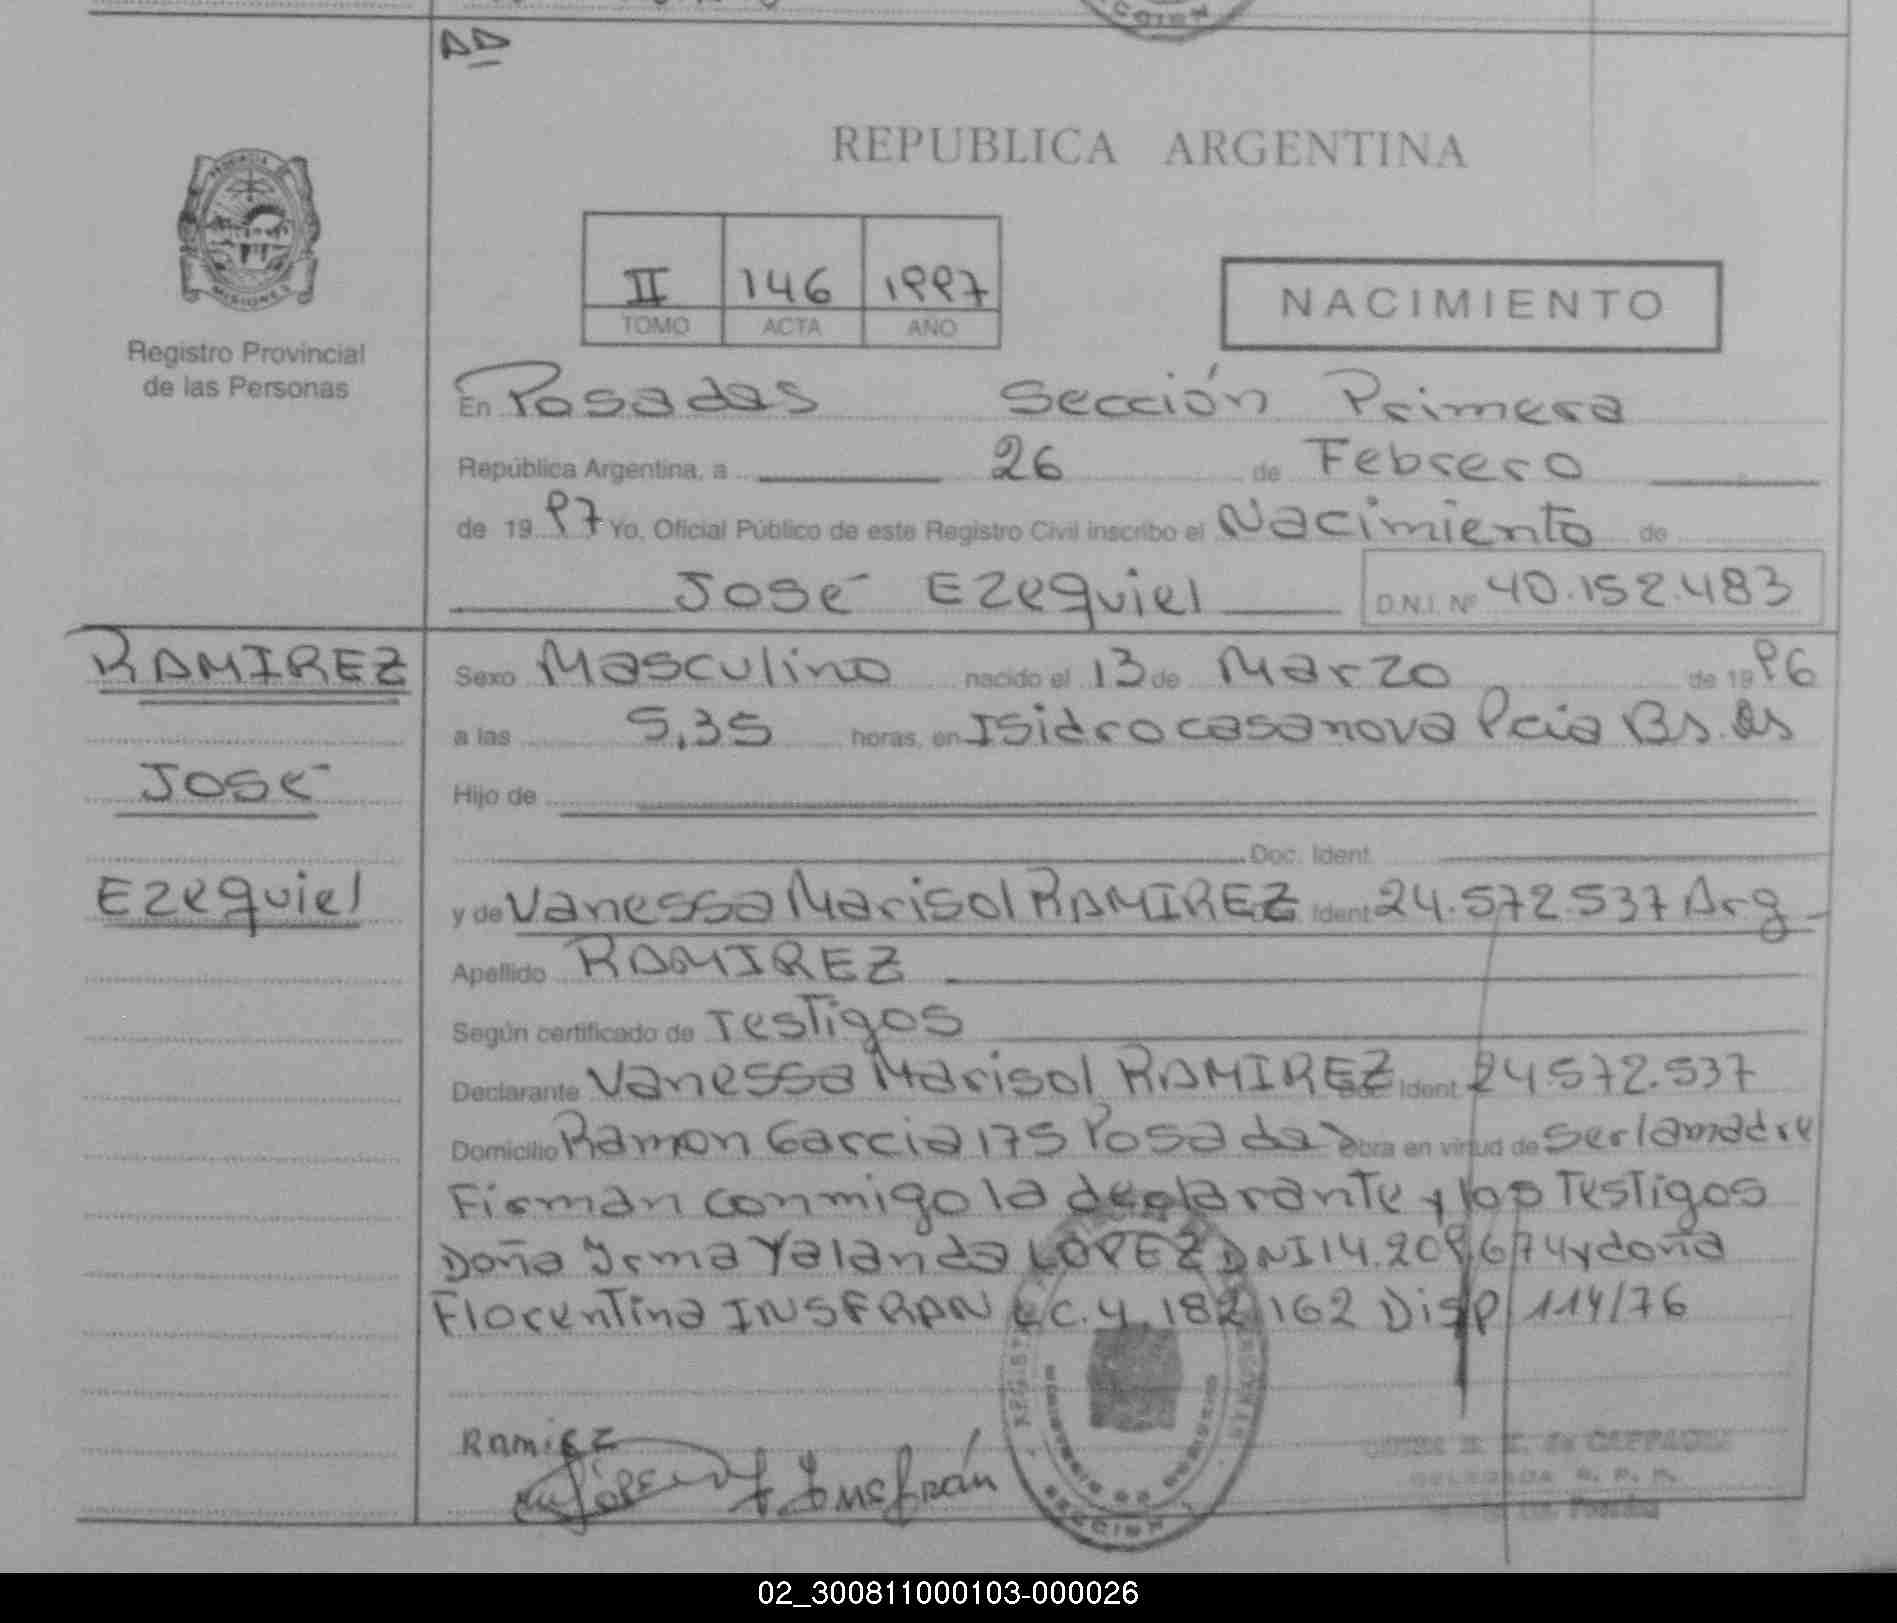 AD
REPUBLICA ARGENTINA
II 146 1997
TOMO ACTA AÑO
NACIMIENTO
MISIONES
Registro Provincial
de las Personas
En Posadas Sección Primera
República Argentina, a 26 de Febrero
de 1997 Yo, Oficial Público de este Registro Civil inscribo el Nacimiento de
José Ezequiel D.N.I. Nº 40.152.483
RAMIREZ
José
Ezequiel
Sexo Masculino nacido el 13 de Marzo de 1996
a las 5,35 horas, en Isidro casanova Pcia Bs. As
Hijo de
Doc. Ident.
y de Vanessa Marisol RAMIREZ Ident 24.572.537 Arg
Apellido RAMIREZ
Según certificado de Testigos
Declarante Vanessa Marisol RAMIREZ Doc. Ident 24.572.537
Domicilio Ramon Garcia 175 Posadas Obra en virtud de ser la madre
Firman conmigo la declarante y los Testigos
Doña Irma Yalanda LOPEZ DNI 14.209.674 y doña
Florentina INSFRAN LC. 4.182.162 Disp 114/76
Ramirez
López F. Insfrán
SECCION
DELEGADA R. P. P.
Posadas
02_300811000103-000026